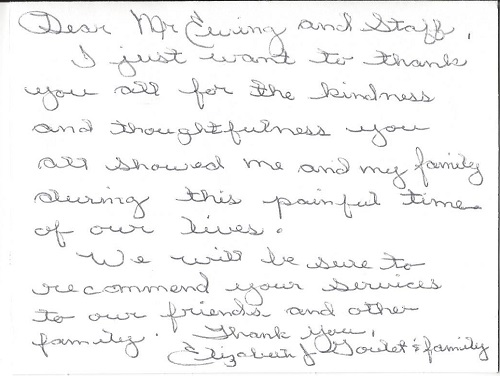 Dear Mr Ewing and Staff,
I just want to thank
you all for the kindness
and thoughtfulness you
all showed me and my family
during this painful time
of our lives.
We will be sure to
recommend your services
to our friends and other
family. Thank you,
Elizabeth J Goulet & family